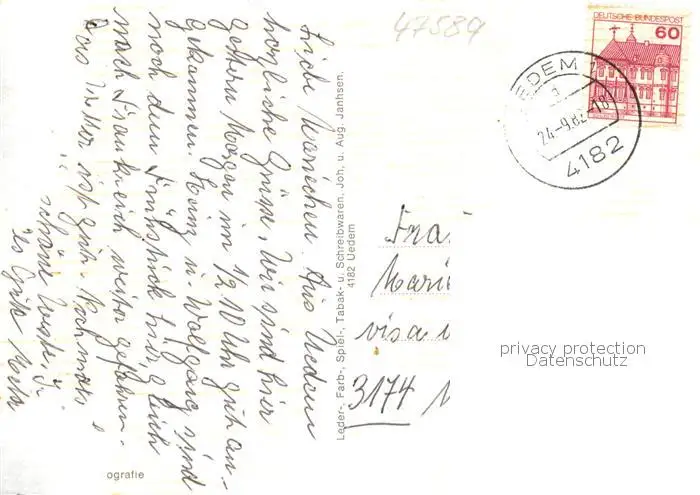 47589
DEUTSCHE BUNDESPOST
60
UEDEM 1
a
24.-9.82-18
4182
Liebe Mariechen. Aus Uedem
herzliche Grüße. Wir sind hier
gestern Morgen im 1/2 10 Uhr gut an-
gekommen. Heinz u. Wolfgang sind
noch dem Frühstück hier, gleich
nach Frankreich weiter gefahren.
Das Wetter ist gut. Nochmals
schöne Grüße
Leder-, Farb-, Spiel-, Tabak- u. Schreibwaren, Joh, u. Aug. Janhsen,
4182 Uedem
Frau
Mari
visa v
3174
privacy protection
Datenschutz
ografie